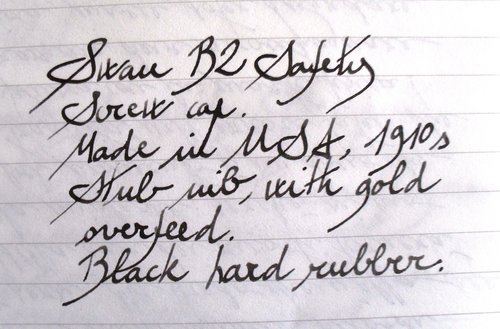 Swan B2 Safety
Screw cap.
Made in USA, 1910s
Stub nib, with gold
overfeed.
Black hard rubber.